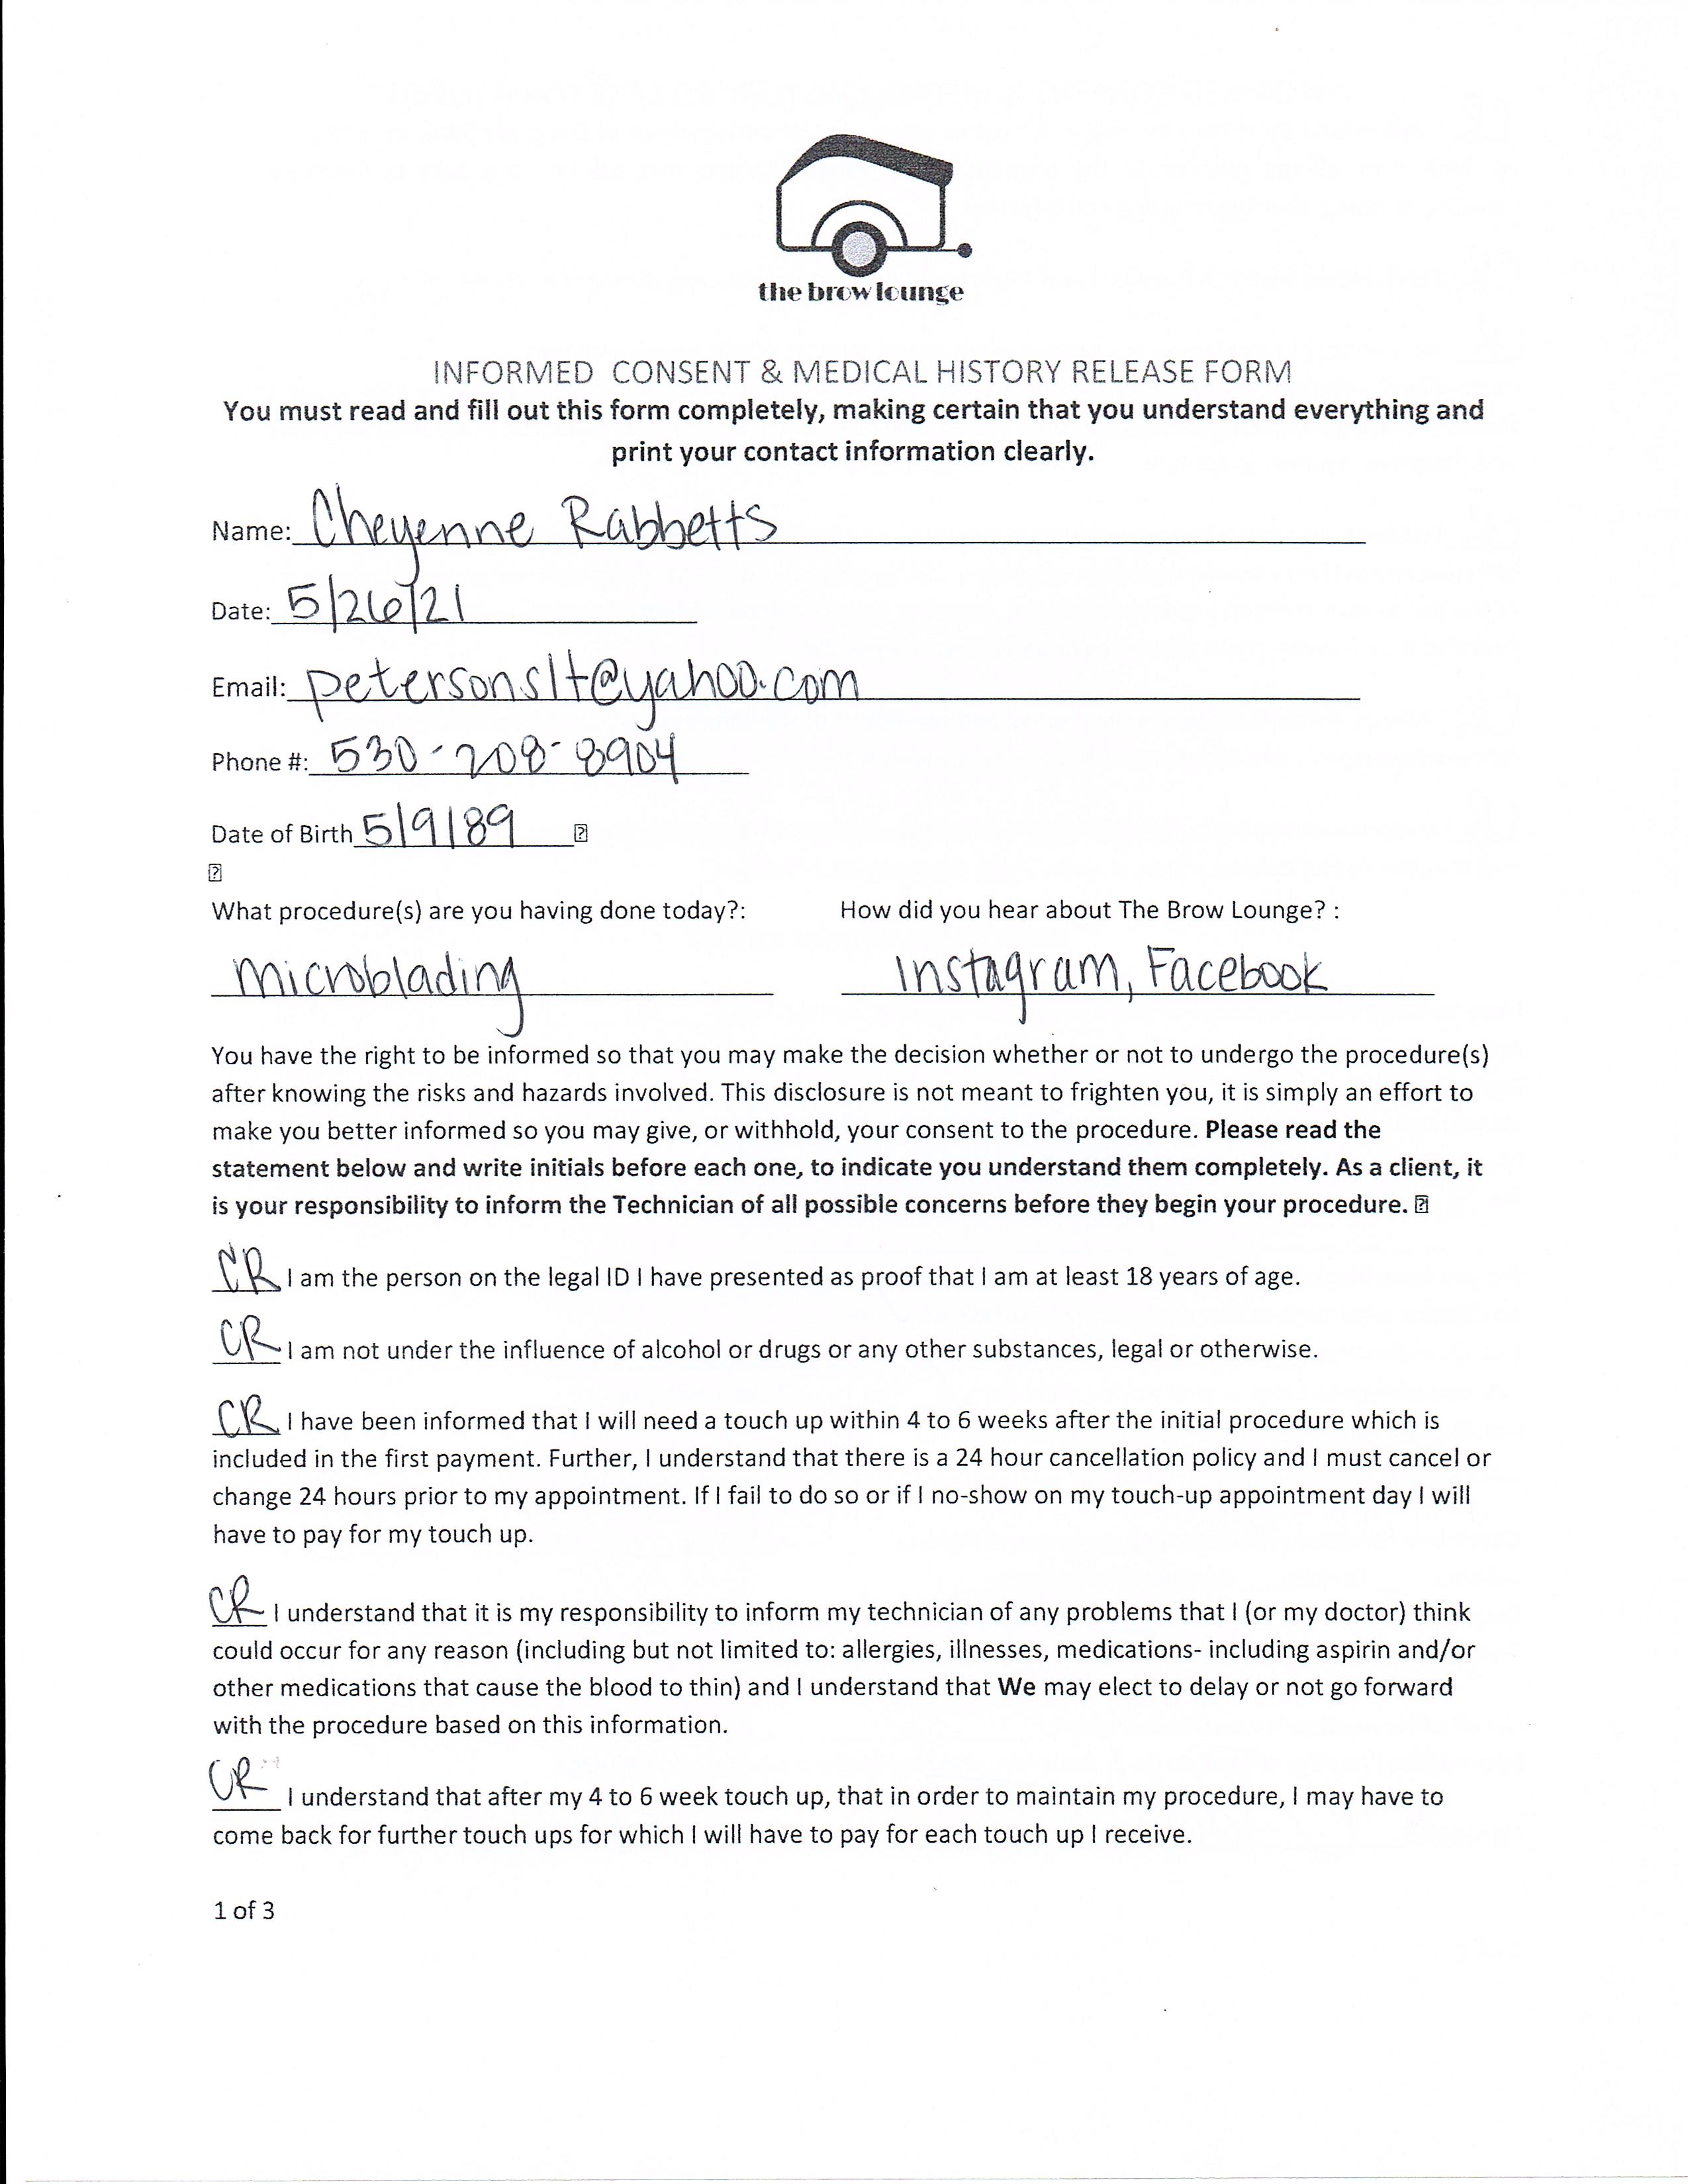 the brow lounge
INFORMED CONSENT & MEDICAL HISTORY RELEASE FORM
You must read and fill out this form completely, making certain that you understand everything and
print your contact information clearly.
Name: Cheyenne Rabbetts
Date: 5/26/21
Email: petersonslt@yahoo.com
Phone #: 530-208-8904
Date of Birth 5/9/89 ?
?
What procedure(s) are you having done today?: How did you hear about The Brow Lounge? :
microblading Instagram, Facebook
You have the right to be informed so that you may make the decision whether or not to undergo the procedure(s)
after knowing the risks and hazards involved. This disclosure is not meant to frighten you, it is simply an effort to
make you better informed so you may give, or withhold, your consent to the procedure. Please read the
statement below and write initials before each one, to indicate you understand them completely. As a client, it
is your responsibility to inform the Technician of all possible concerns before they begin your procedure. ?
CR I am the person on the legal ID I have presented as proof that I am at least 18 years of age.
CR I am not under the influence of alcohol or drugs or any other substances, legal or otherwise.
CR I have been informed that I will need a touch up within 4 to 6 weeks after the initial procedure which is
included in the first payment. Further, I understand that there is a 24 hour cancellation policy and I must cancel or
change 24 hours prior to my appointment. If I fail to do so or if I no-show on my touch-up appointment day I will
have to pay for my touch up.
CR I understand that it is my responsibility to inform my technician of any problems that I (or my doctor) think
could occur for any reason (including but not limited to: allergies, illnesses, medications- including aspirin and/or
other medications that cause the blood to thin) and I understand that We may elect to delay or not go forward
with the procedure based on this information.
CR I understand that after my 4 to 6 week touch up, that in order to maintain my procedure, I may have to
come back for further touch ups for which I will have to pay for each touch up I receive.
1 of 3